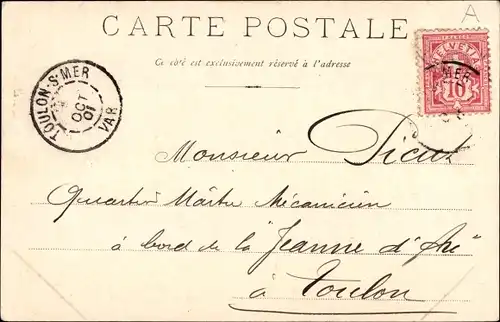 A
CARTE POSTALE
Ce côté est exclusivement réservé à l'adresse
HELVETIA
10
TOULON-S-MER
OCT
01
VAR
Monsieur
Quartier Maître Mécanicien
à bord de la "Jeanne d'Arc"
à Toulon